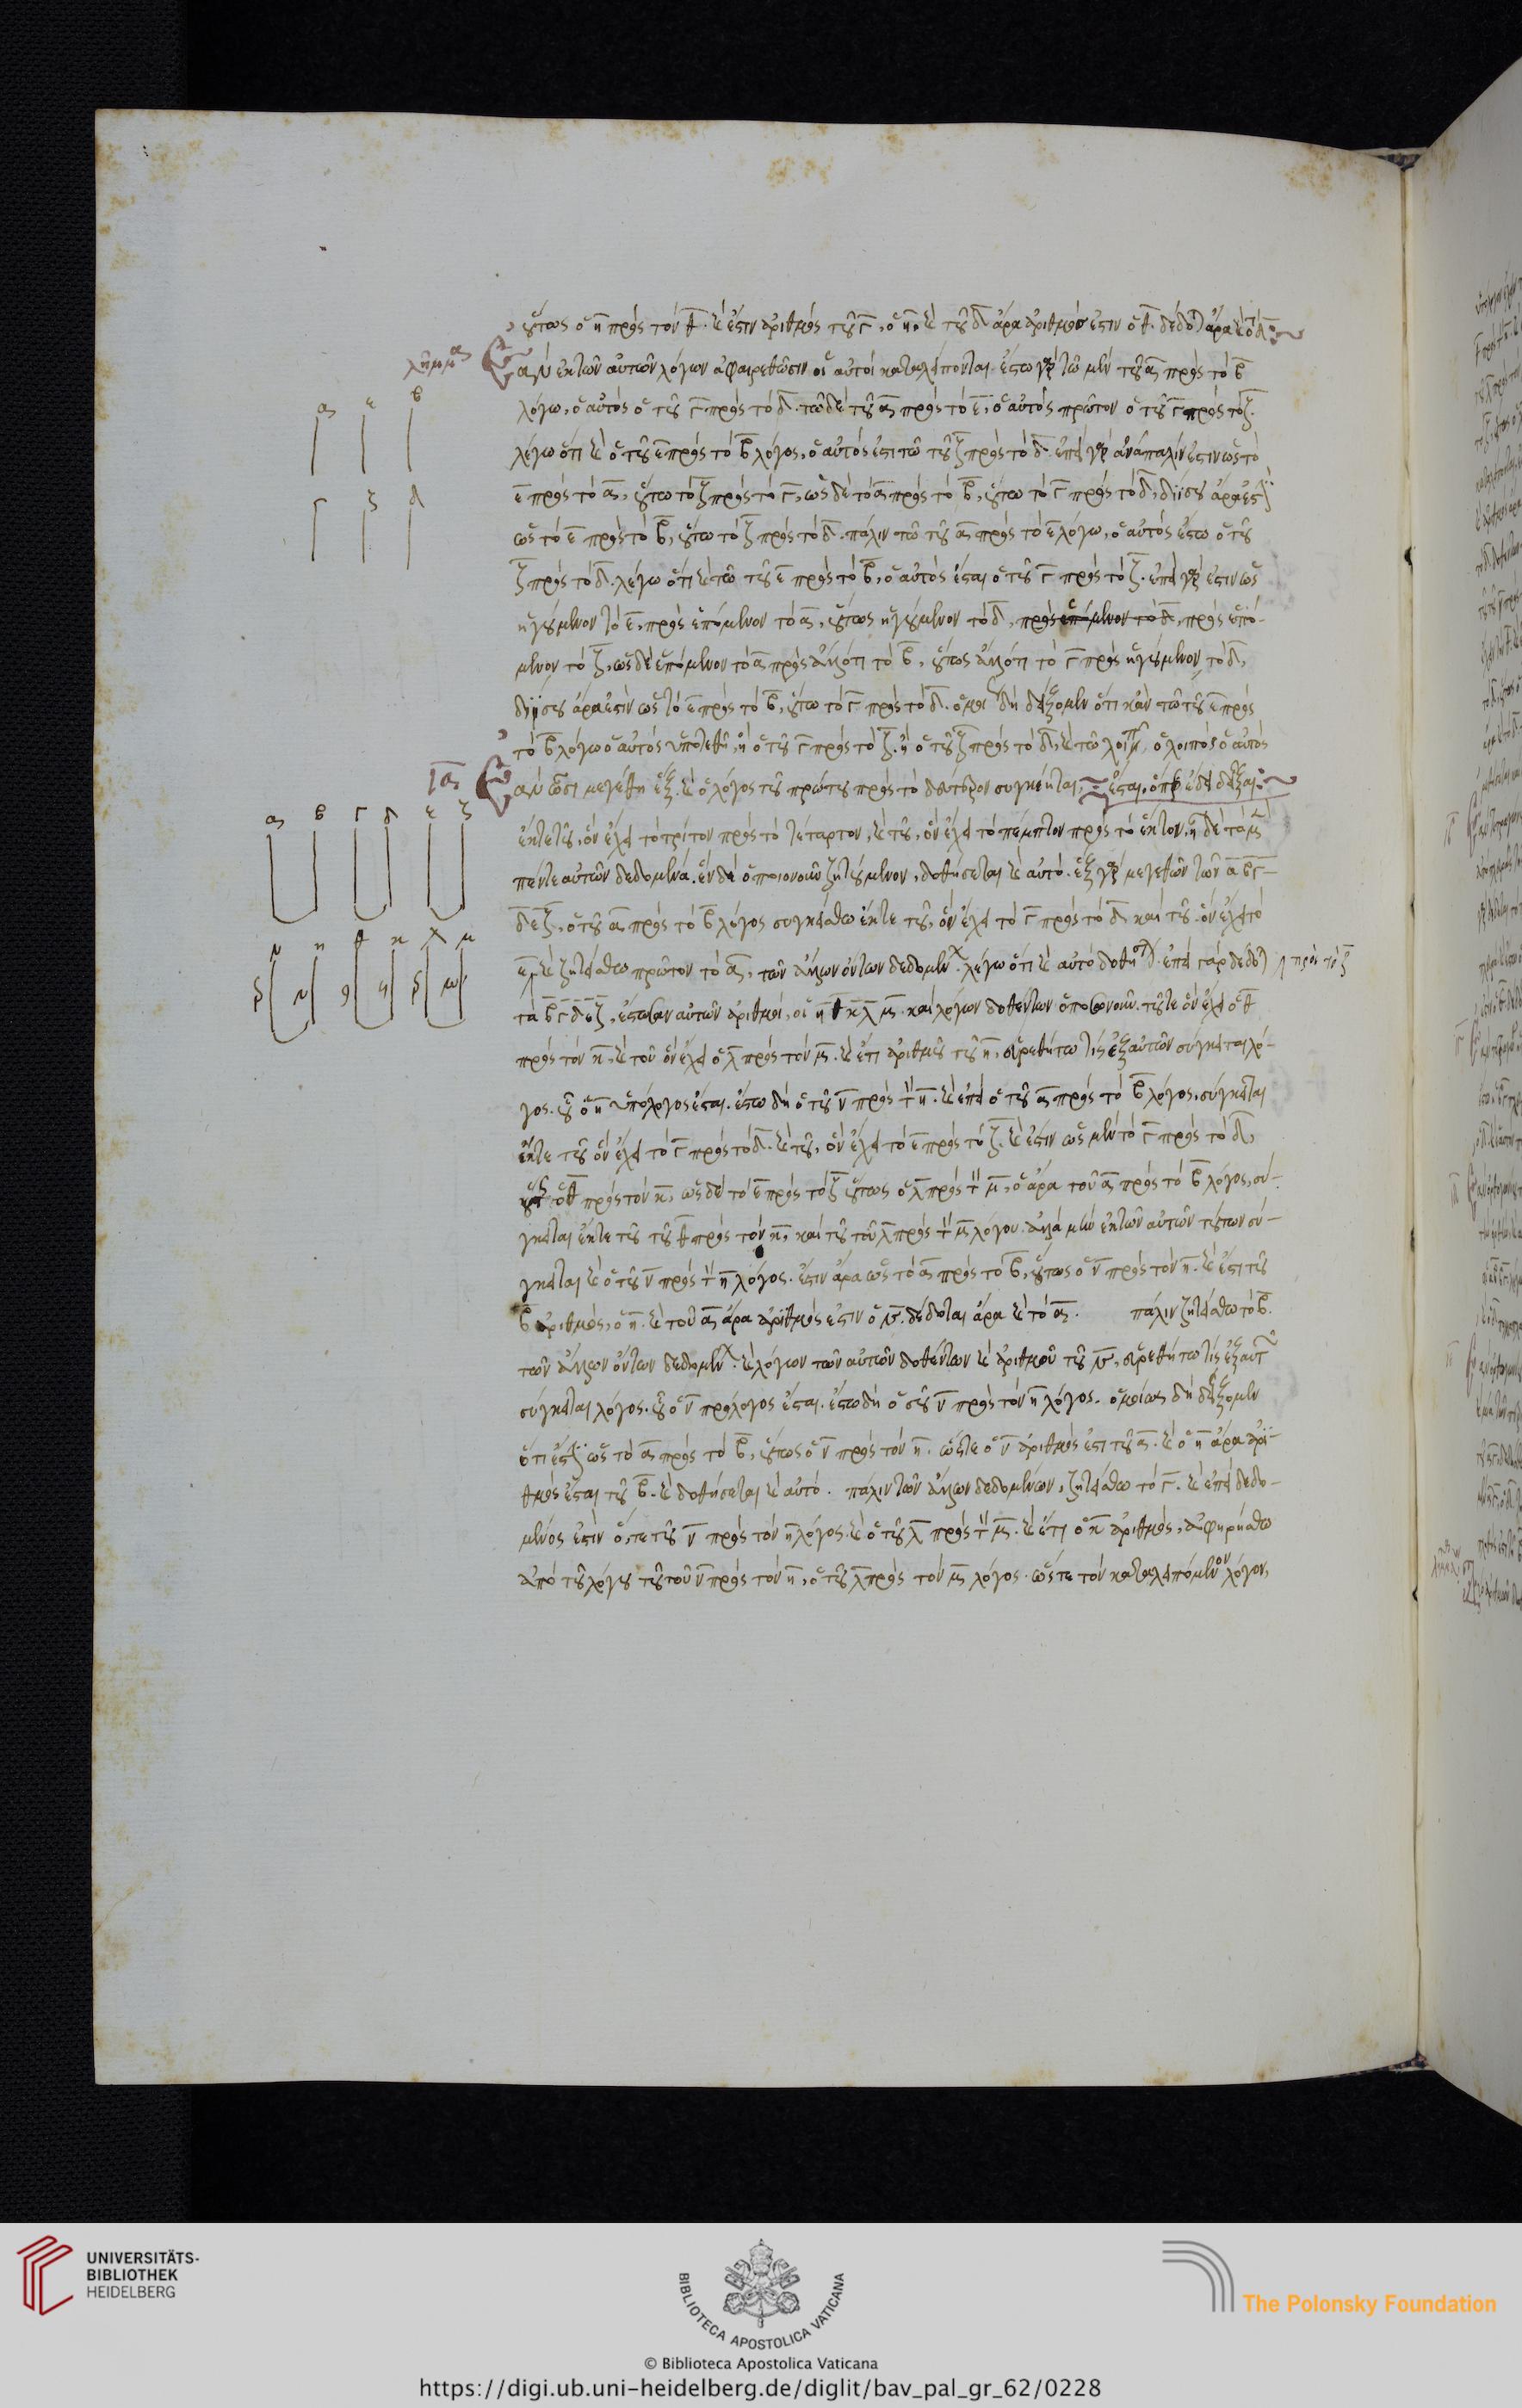 οὕτως ὁ η πρὸς τὸν θ. καὶ ἔστιν ἀριθμὸς τοῦ γ, ὁ η. καὶ τοῦ δ ἄρα ἀριθμός ἐστιν ὁ θ. δέδοται ἄρα καὶ τὸ δ:~
λῆμμα
ἐὰν ἐκ τῶν αὐτῶν λόγων ἀφαιρεθῶσιν οἱ αὐτοὶ καταλείπονται. ἔστω γὰρ τῷ μὲν τοῦ α πρὸς τὸ β
λόγῳ, ὁ αὐτὸς ὁ τοῦ γ πρὸς τὸ δ. τῷ δὲ τοῦ α πρὸς τὸ ε, ὁ αὐτὸς πρῶτον ὁ τοῦ γ πρὸς τὸ ζ.
λέγω ὅτι καὶ ὁ τοῦ ε πρὸς τὸ β λόγος, ὁ αὐτός ἐστι τῷ τοῦ ζ πρὸς τὸ δ. ἐπεὶ γὰρ ἀνάπαλίν ἐστιν ὡς τὸ
ε πρὸς τὸ α, οὕτω τὸ ζ πρὸς τὸ γ, ὡς δὲ τὸ α πρὸς τὸ β, οὕτω τὸ γ πρὸς τὸ δ, διίσου ἄρα ἐστὶν
ὡς τὸ ε πρὸς τὸ β, οὕτω τὸ ζ πρὸς τὸ δ. πάλιν τῷ τοῦ α πρὸς τὸ ε λόγῳ, ὁ αὐτὸς ἔστω ὁ τοῦ
ζ πρὸς τὸ δ. λέγω ὅτι καὶ τῷ τοῦ ε πρὸς τὸ β, ὁ αὐτὸς ἔσται ὁ τοῦ γ πρὸς τὸ ζ. ἐπεὶ γάρ ἐστιν ὡς
ἡγούμενον τὸ ε, πρὸς ἑπόμενον τὸ α, οὕτως ἡγούμενον τὸ δ, πρὸς ἑπόμενον τὸ δ, πρὸς ἑπό-
μενον τὸ ζ, ὡς δὲ ἑπόμενον τὸ α πρὸς ἄλλό τι τὸ β, οὕτως ἄλλό τι τὸ γ πρὸς ἡγούμενον τὸ δ,
διίσου ἄρα ἐστὶν ὡς τὸ ε πρὸς τὸ β, οὕτω τὸ γ πρὸς τὸ δ. ὁμοίως δὴ δείξομεν ὅτι κἂν τῷ τοῦ ε πρὸς
τὸ β λόγῳ ὁ αὐτὸς ὑποτεθῇ, ἢ ὁ τοῦ γ πρὸς τὸ ζ. ἢ ὁ τοῦ ζ πρὸς τὸ δ, καὶ τῷ λοιπῷ, ὁ λοιπὸς ὁ αὐτὸς
ἔσται, ὅπερ ἔδει δεῖξαι:~
ια
ἐὰν ὦσι μεγέθη ἕξ. καὶ ὁ λόγος τοῦ πρώτου πρὸς τὸ δεύτερον συγκέηται,
ἔκ τε τοῦ, ὃν ἔχει τὸ τρίτον πρὸς τὸ τέταρτον, καὶ τοῦ, ὃν ἔχει τὸ πέμπτον πρὸς τὸ ἕκτον, ᾖ δὲ τὰ μὲν
πέντε αὐτῶν δεδομένα. ἓν δὲ ὁποιονοῦν ζητούμενον, δοθήσεται καὶ αὐτό. ἓξ γὰρ μεγεθῶν τῶν α β γ
δ ε ζ, ὁ τοῦ α πρὸς τὸ β λόγος συγκείσθω ἔκ τε τοῦ, ὃν ἔχει τὸ γ πρὸς τὸ δ, καὶ τοῦ. ὃν ἔχει τὸ
ε, καὶ ζητείσθω πρῶτον τὸ α, τῶν ἄλλων ὄντων δεδομένων. λέγω ὅτι καὶ αὐτὸ δοθήσεται. ἐπεὶ γὰρ δέδοται
πρὸς τὸ ζ
τὰ β γ δ ε ζ, ἔστωσαν αὐτῶν ἀριθμοί, οἱ η θ κ λ μ. καὶ λόγων δοθέντων ὁποιωνοῦν. τοῦ τε ὃν ἔχει ὁ θ
πρὸς τὸν κ, καὶ τοῦ ὃν ἔχει ὁ λ πρὸς τὸν μ. καὶ ἔτι ἀριθμοῦ τοῦ η, εὑρεθήτω τίς ἐξ αὐτῶν σύγκειται λό-
γος. οὗ ὁ η ὑπόλογος ἔσται. ἔστω δὴ ὁ τοῦ ν πρὸς τὸν η. καὶ ἐπεὶ ὁ τοῦ α πρὸς τὸ β λόγος, σύγκειται
ἔκ τε τοῦ ὃν ἔχει τὸ γ πρὸς τὸ δ. καὶ τοῦ, ὃν ἔχει τὸ ε πρὸς τὸ ζ. καὶ ἔστιν ὡς μὲν τὸ γ πρὸς τὸ δ,
οὕτως ὁ θ πρὸς τὸν κ, ὡς δὲ τὸ ε πρὸς τὸ ζ οὕτως ὁ λ πρὸς τὸν μ, ὁ ἄρα τοῦ α πρὸς τὸ β λόγος, σύ-
γκειται ἔκ τε τοῦ τοῦ θ πρὸς τὸν κ, καὶ τοῦ τοῦ λ πρὸς τὸν μ λόγου. ἀλλὰ μὲν ἐκ τῶν αὐτῶν τούτων σύ-
γκειται καὶ ὁ τοῦ ν πρὸς τὸν η λόγος. ἔστιν ἄρα ὡς τὸ α πρὸς τὸ β, οὕτως ὁ ν πρὸς τὸν η. καὶ ἔστι τοῦ
β ἀριθμὸς, ὁ η. καὶ τοῦ α ἄρα ἀριθμός ἐστιν ὁ ν. δέδοται ἄρα καὶ τὸ α. πάλιν ζητείσθω τὸ β.
τῶν ἄλλων ὄντων δεδομένων. καὶ λόγων τῶν αὐτῶν δοθέντων καὶ ἀριθμοῦ τοῦ ν, εὑρεθήτω τίς ἐξ αὐτῶν
σύγκειται λόγος. οὗ ὁ ν πρόλογος ἔσται. ἔστω δὴ ὁ τοῦ ν πρὸς τὸν η λόγος. ὁμοίως δὴ δείξομεν
ὅτι ἐστὶν ὡς τὸ α πρὸς τὸ β, οὕτως ὁ ν πρὸς τὸν η. ὥστε ὁ ν ἀριθμός ἐστι τοῦ α. καὶ ὁ η ἄρα ἀρι-
θμὸς ἔσται τοῦ β. καὶ δοθήσεται καὶ αὐτό. πάλιν τῶν ἄλλων δεδομένων, ζητείσθω τὸ γ. καὶ ἐπεὶ δεδο-
μένος ἐστὶν ὅ, τε τοῦ ν πρὸς τὸν η λόγος. καὶ ὁ τοῦ λ πρὸς τὸν μ. καὶ ἔτι ὁ κ ἀριθμός, ἀφῃρήσθω
ἀπὸ τοῦ λόγου τοῦ τοῦ ν πρὸς τὸν η, ὁ τοῦ λ πρὸς τὸν μ λόγος. ὥστε τὸν καταλειπόμενον λόγον,
α ε β
γ ζ δ
α β γ δ ε ζ
ν η θ κ λ μ
UNIVERSITÄTS-
BIBLIOTHEK
HEIDELBERG
BIBLIOTECA APOSTOLICA VATICANA
The Polonsky Foundation
© Biblioteca Apostolica Vaticana
https://digi.ub.uni-heidelberg.de/diglit/bav_pal_gr_62/0228